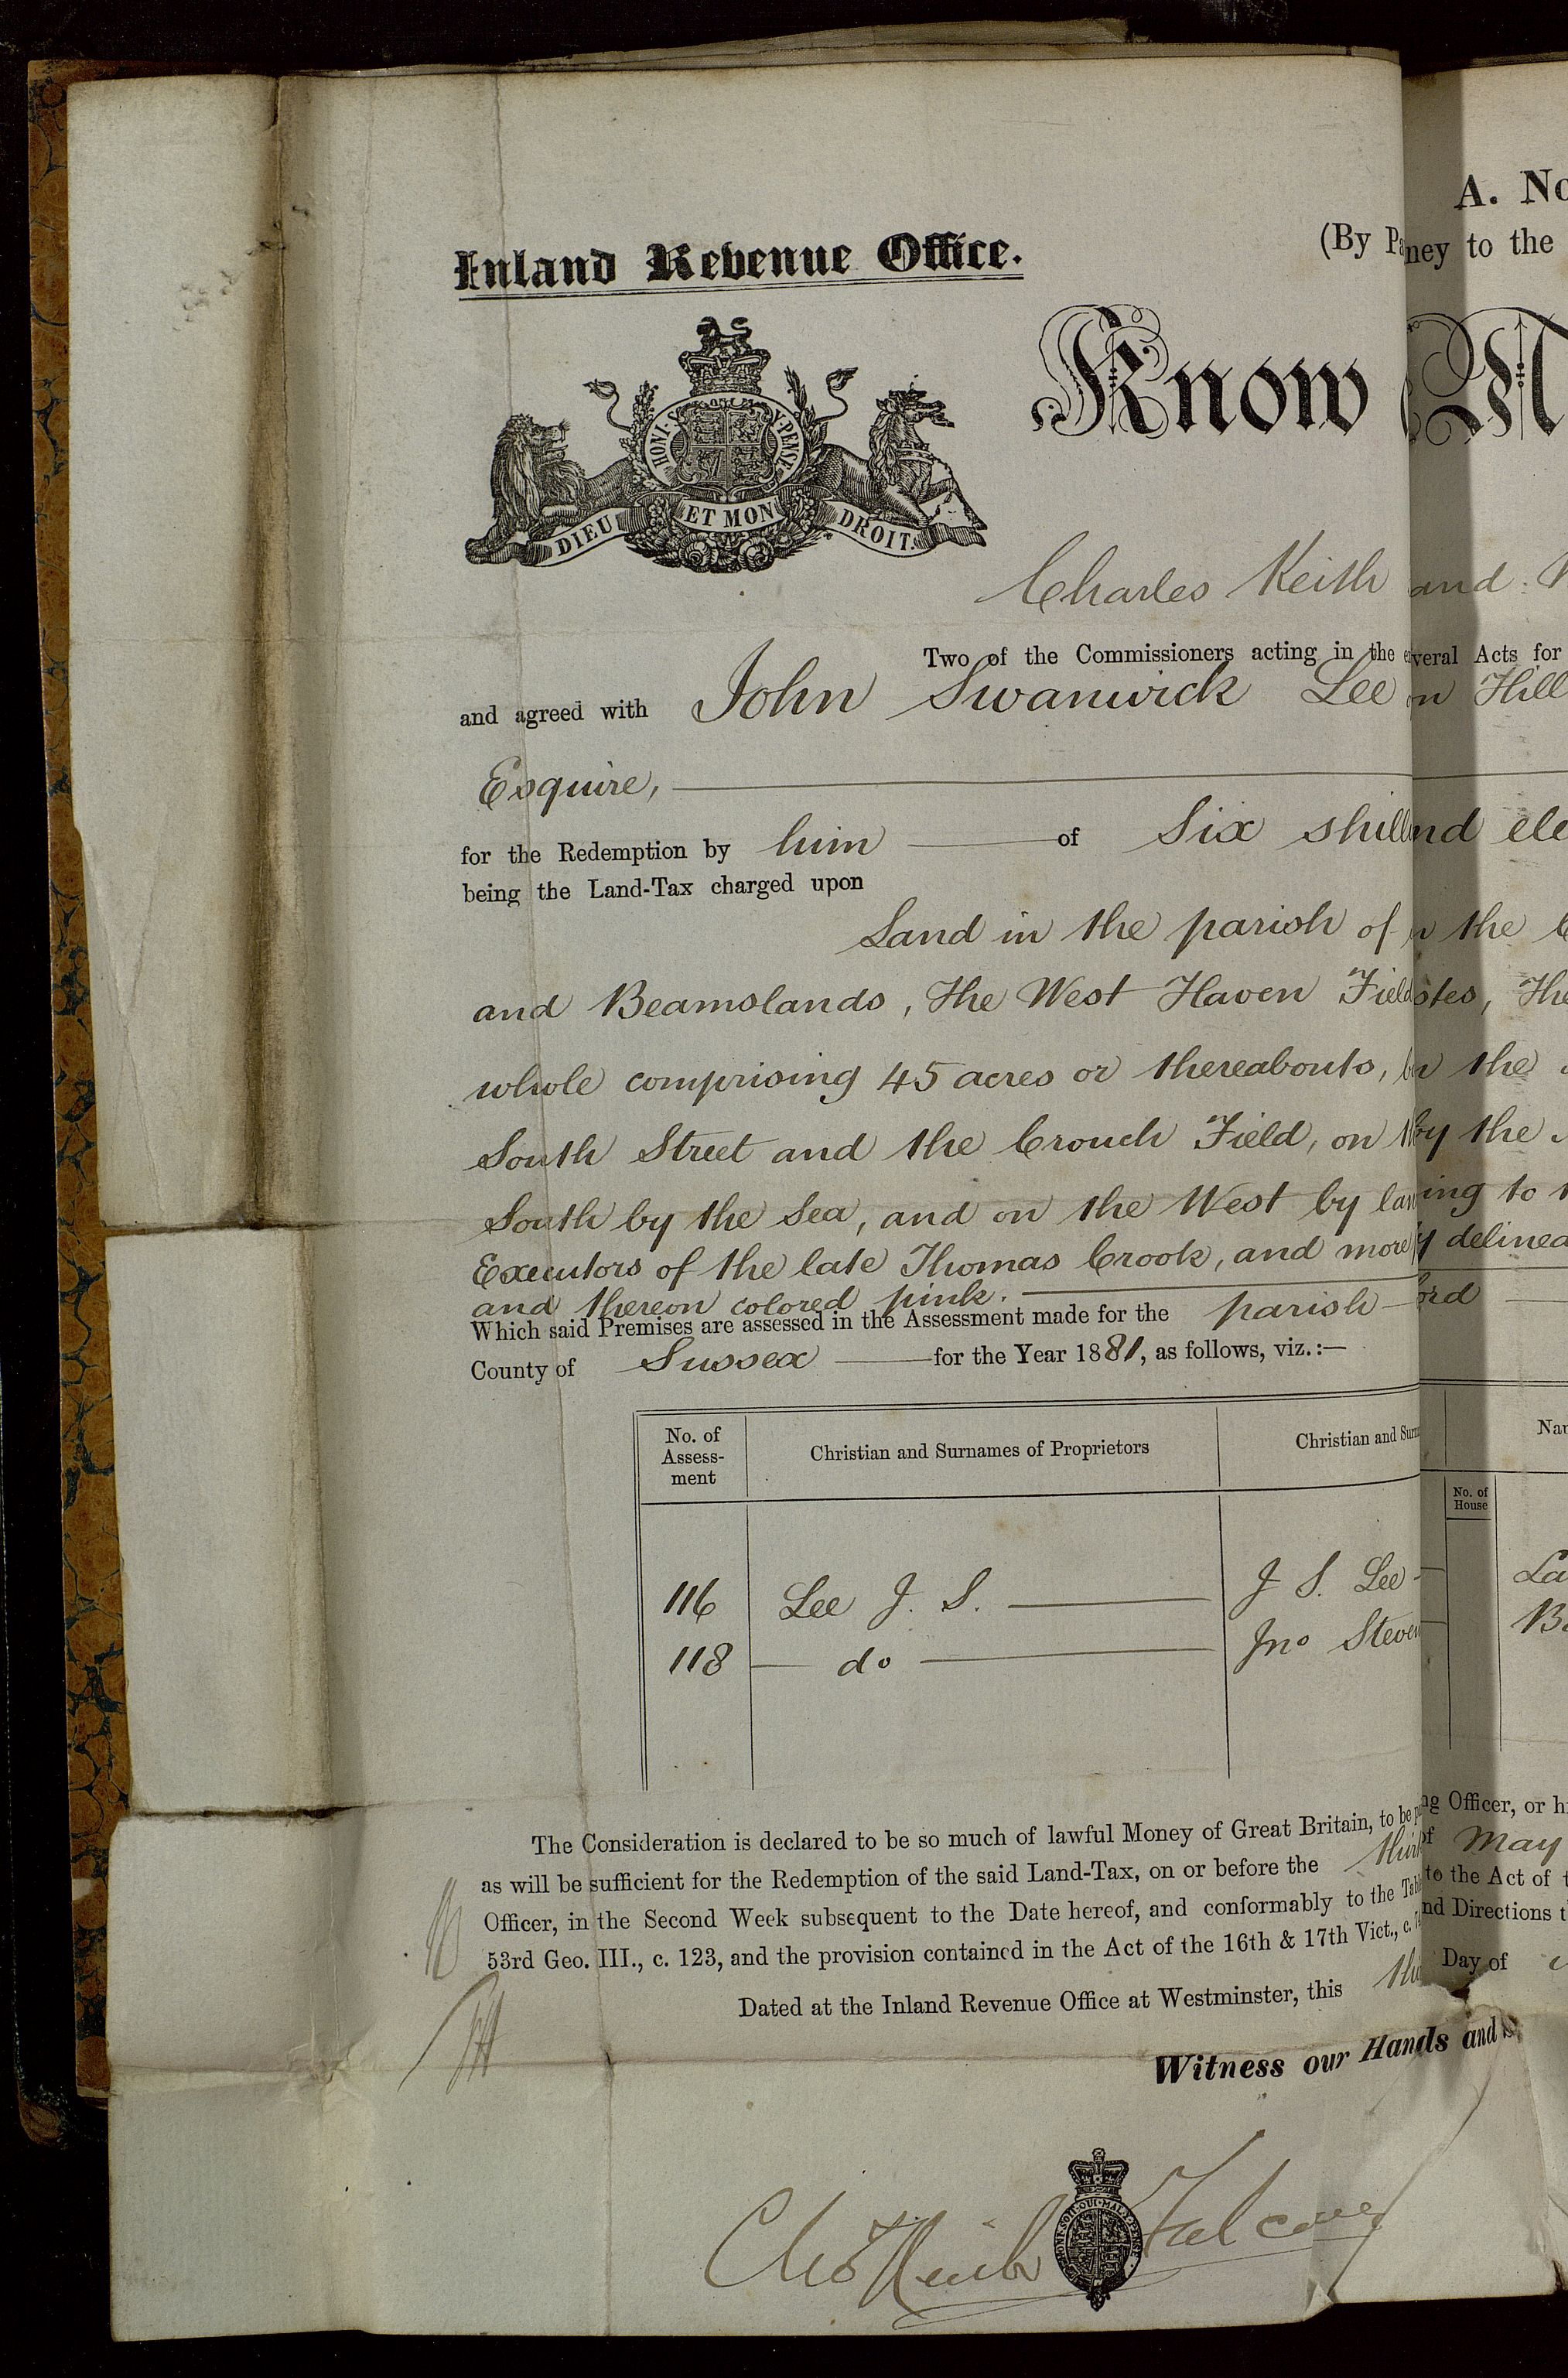 A. No
Inland Revenue Office.
(By Pa ney to the
Know
HONI PENSE
DIEU ET MON DROIT.
Charles Keith and
Two of the Commissioners acting in the everal Acts for
and agreed with John Swanwick Lee n Hill
Esquire,
for the Redemption by him of Six shill nd ele
being the Land-Tax charged upon
Land in the parish of the
and Beamslands, The West Haven Field stes, The
whole comprising 45 acres or thereabouts, the
South Street and the Crouch Field, on by the
South by the Sea, and on the West by lan ing to
Executors of the late Thomas Crook, and more y delinea
and thereon colored pink.
Which said Premises are assessed in the Assessment made for the parish ord
County of Sussex for the Year 1881, as follows, viz.:—
No. of Assess-ment Christian and Surnames of Proprietors Christian and Surn Nar
No. of House
116 Lee J. S. J S. Lee La
118 do Jno Steven
The Consideration is declared to be so much of lawful Money of Great Britain, to be p ng Officer, or h
as will be sufficient for the Redemption of the said Land-Tax, on or before the thirt of May
Officer, in the Second Week subsequent to the Date hereof, and conformably to the Tabl to the Act of t
53rd Geo. III., c. 123, and the provision contained in the Act of the 16th & 17th Vict., c. nd Directions t
Dated at the Inland Revenue Office at Westminster, this thi Day of
Witness our Hands and
Chas Keith
HONI SOIT QUI MAL Y PENSE